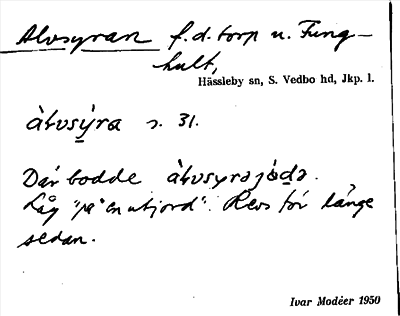 Alvsyran f.d. torp u. Fung-
hult,
Hässleby sn, S. Vedbo hd, Jkp. l.
àlvsýra s. 31.
Där bodde àlvsyrəjòdə.
Låg "på en utjord". Revs för länge
sedan.
Ivar Modéer 1950